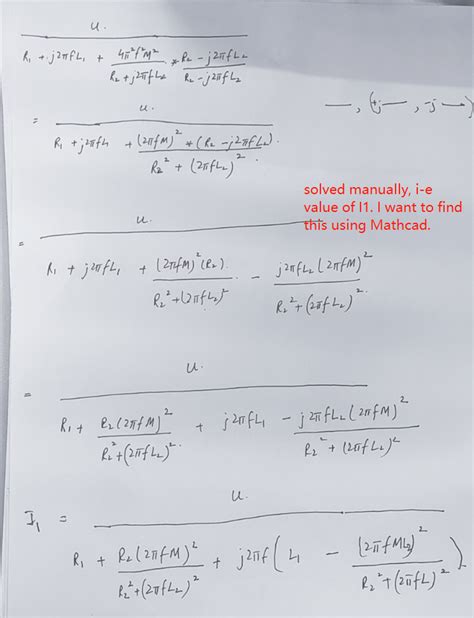 u.
R₁ + j2πfL₁ + 4π²f²M² / R₂ + j2πfL₂ * R₂ - j2πfL₂ / R₂ - j2πfL₂
—, (+j—, -j—)
= u. / R₁ + j2πfL₁ + (2πfM)² * (R₂ - j2πfL₂) / R₂² + (2πfL₂)².
solved manually, i-e
value of I1. I want to find
this using Mathcad.
= u. / R₁ + j2πfL₁ + (2πfM)²(R₂) / R₂² + (2πfL₂)² - j2πfL₂(2πfM)² / R₂² + (2πfL₂)².
= u. / R₁ + R₂(2πfM)² / R₂² + (2πfL₂)². + j2πfL₁ - j2πfL₂(2πfM)² / R₂² + (2πfL₂)²
I₁ = u. / R₁ + R₂(2πfM)² / R₂² + (2πfL₂)² + j2πf(L₁ - (2πfML₂)² / R₂² + (2πfL)²)